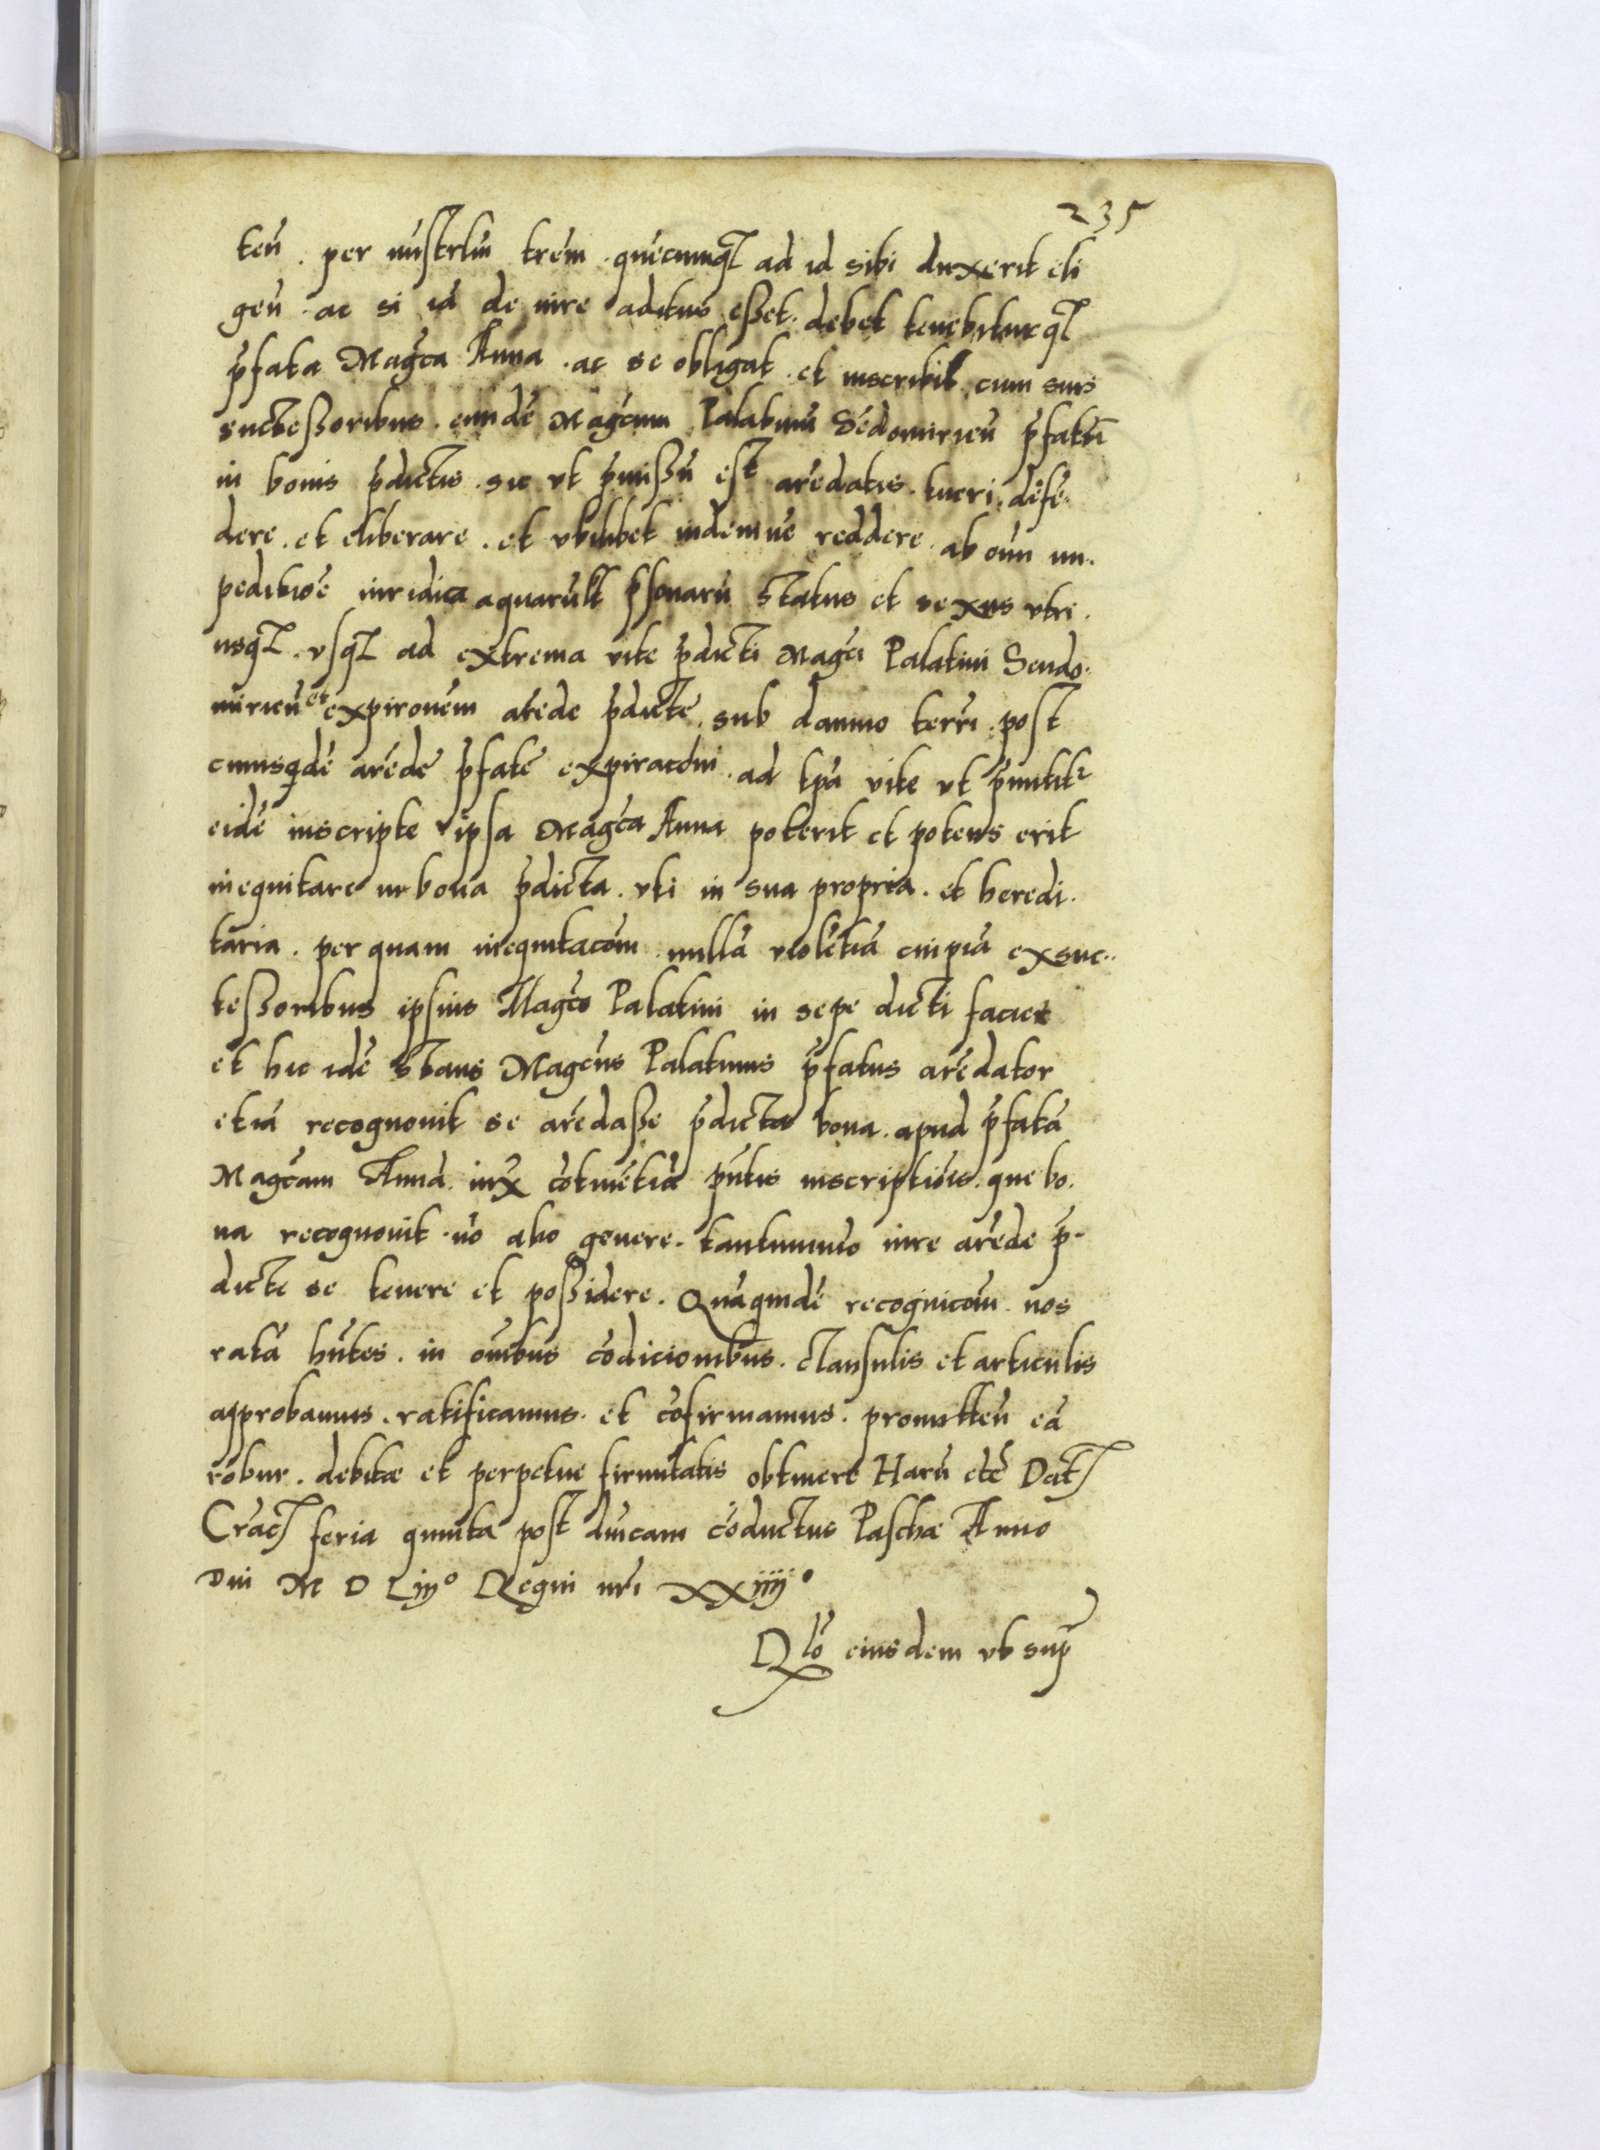 235
teñ. per mīstrlm̄ trem̄. quēcumqꝫ ad id sibi duxerit eli
geñ. ac si id de iure aditus esset. debet tenebiturqꝫ
p̄fata Magca Anna. ac se obligat. et inscribit cum suis
suctessoribus. eundē Magcum Palatinū Sēdomirieñ p̄fatū
in bonis p̄dictis. sic ut p̄missū est arēdatis. tueri. defē.
dere. et eliberare. et ubilibet indemnē reddere. ab oīm im.
peditioē iuridica aquarūlt p̄sonarū status et sexus utri.
usqꝫ. usqꝫ ad extrema vite p̄dicti Magci Palatini Sendo.
mirieñ et expironem̄ arēde p̄dicte. sub damno terrī. post
cuiusqdē arēde p̄fate expiracōm. ad tpa vite ut p̄mittitr
eidē inscripte ipsa Magca Anna poterit et potens erit
inequitare in bona p̄dicta. uti in sua propria. et heredi.
taria. per quam inequitacōm nullā violētiā cuipiā ex suc..
tessoribus ipsius Magco Palatini in sepe dicti faciet
et hic idē stans Magcus Palatinus p̄fatus arēdator
etiā recognovit se arēdasse p̄dicta bona. apud p̄fatā
Magcam Annā. iux cōtinētiā p̄ntis inscriptiōis. que bo.
na recognovit. nō alio genere. tantummō iure arēde p̄.
dicte se tenere et possidere. Quāquidē recognicōm nos
ratā hñtes. in om̄ibus cōdicionibus. clausulis et articulis
approbamus. ratificamus. et cōfirmamus. promitteñ eā
robur. debitæ et perpetue firmitatis obtinere Harū etc̄ Datꝫ
Cracꝫ feria quinta post dm̄cam cōductus Paschæ Anno
Dni M D Liijº Regni nr̄i XXiiijº
Rlō eiusdem ut sup̄